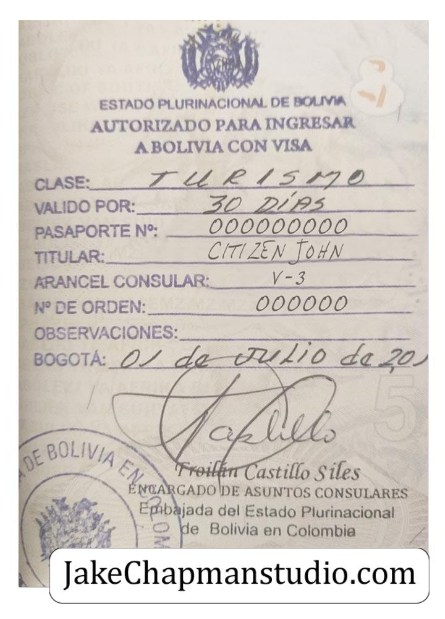 ESTADO PLURINACIONAL DE BOLIVIA
AUTORIZADO PARA INGRESAR
A BOLIVIA CON VISA
CLASE: TURISMO
VALIDO POR: 30 DÍAS
PASAPORTE Nº: 000000000
TITULAR: CITIZEN JOHN
ARANCEL CONSULAR: V-3
Nº DE ORDEN: 000000
OBSERVACIONES:
BOGOTÁ: 01 de JULIO de 201
Castillo
Froilán Castillo Siles
ENCARGADO DE ASUNTOS CONSULARES
Embajada del Estado Plurinacional
de Bolivia en Colombia
DE BOLIVIA EN COLOM
JakeChapmanstudio.com